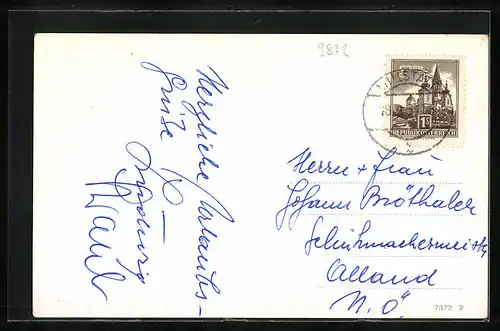 9872
Herzliche Urlaubs-
Grüße
1 S
REPUBLIK ÖSTERREICH
Herrn + Frau
Johann Bröthaler
Schuhmachermeister
Alland
N.Ö.
7372 2